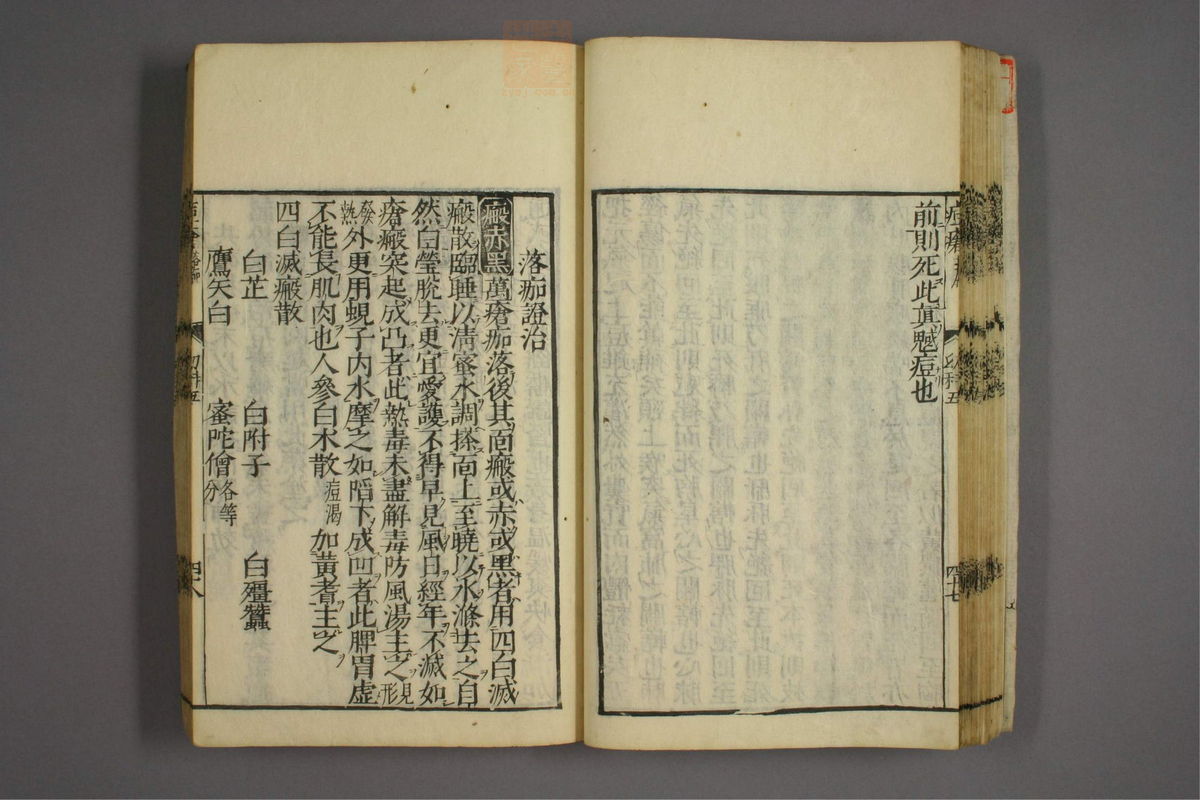 前則死此眞魃痘也
四十七
落痂證治
瘢赤黑萬瘡痂落後其面瘢或赤或黑者用四白滅
瘢散臨睡以清蜜水調搽面上至曉以水滌去之自
然白瑩脫去更宜愛護不得早見風日經年不滅如
瘡瘢突起成凸者此熱毒未盡解毒防風湯主之見形
發熱外更用蜆子內水摩之如陷下成凹者此脾胃虛
不能長肌肉也人參白朮散痘渴加黃耆主之
四白滅瘢散
白芷 白附子 白殭蠶
鷹矢白 蜜陀僧各等分
四十八